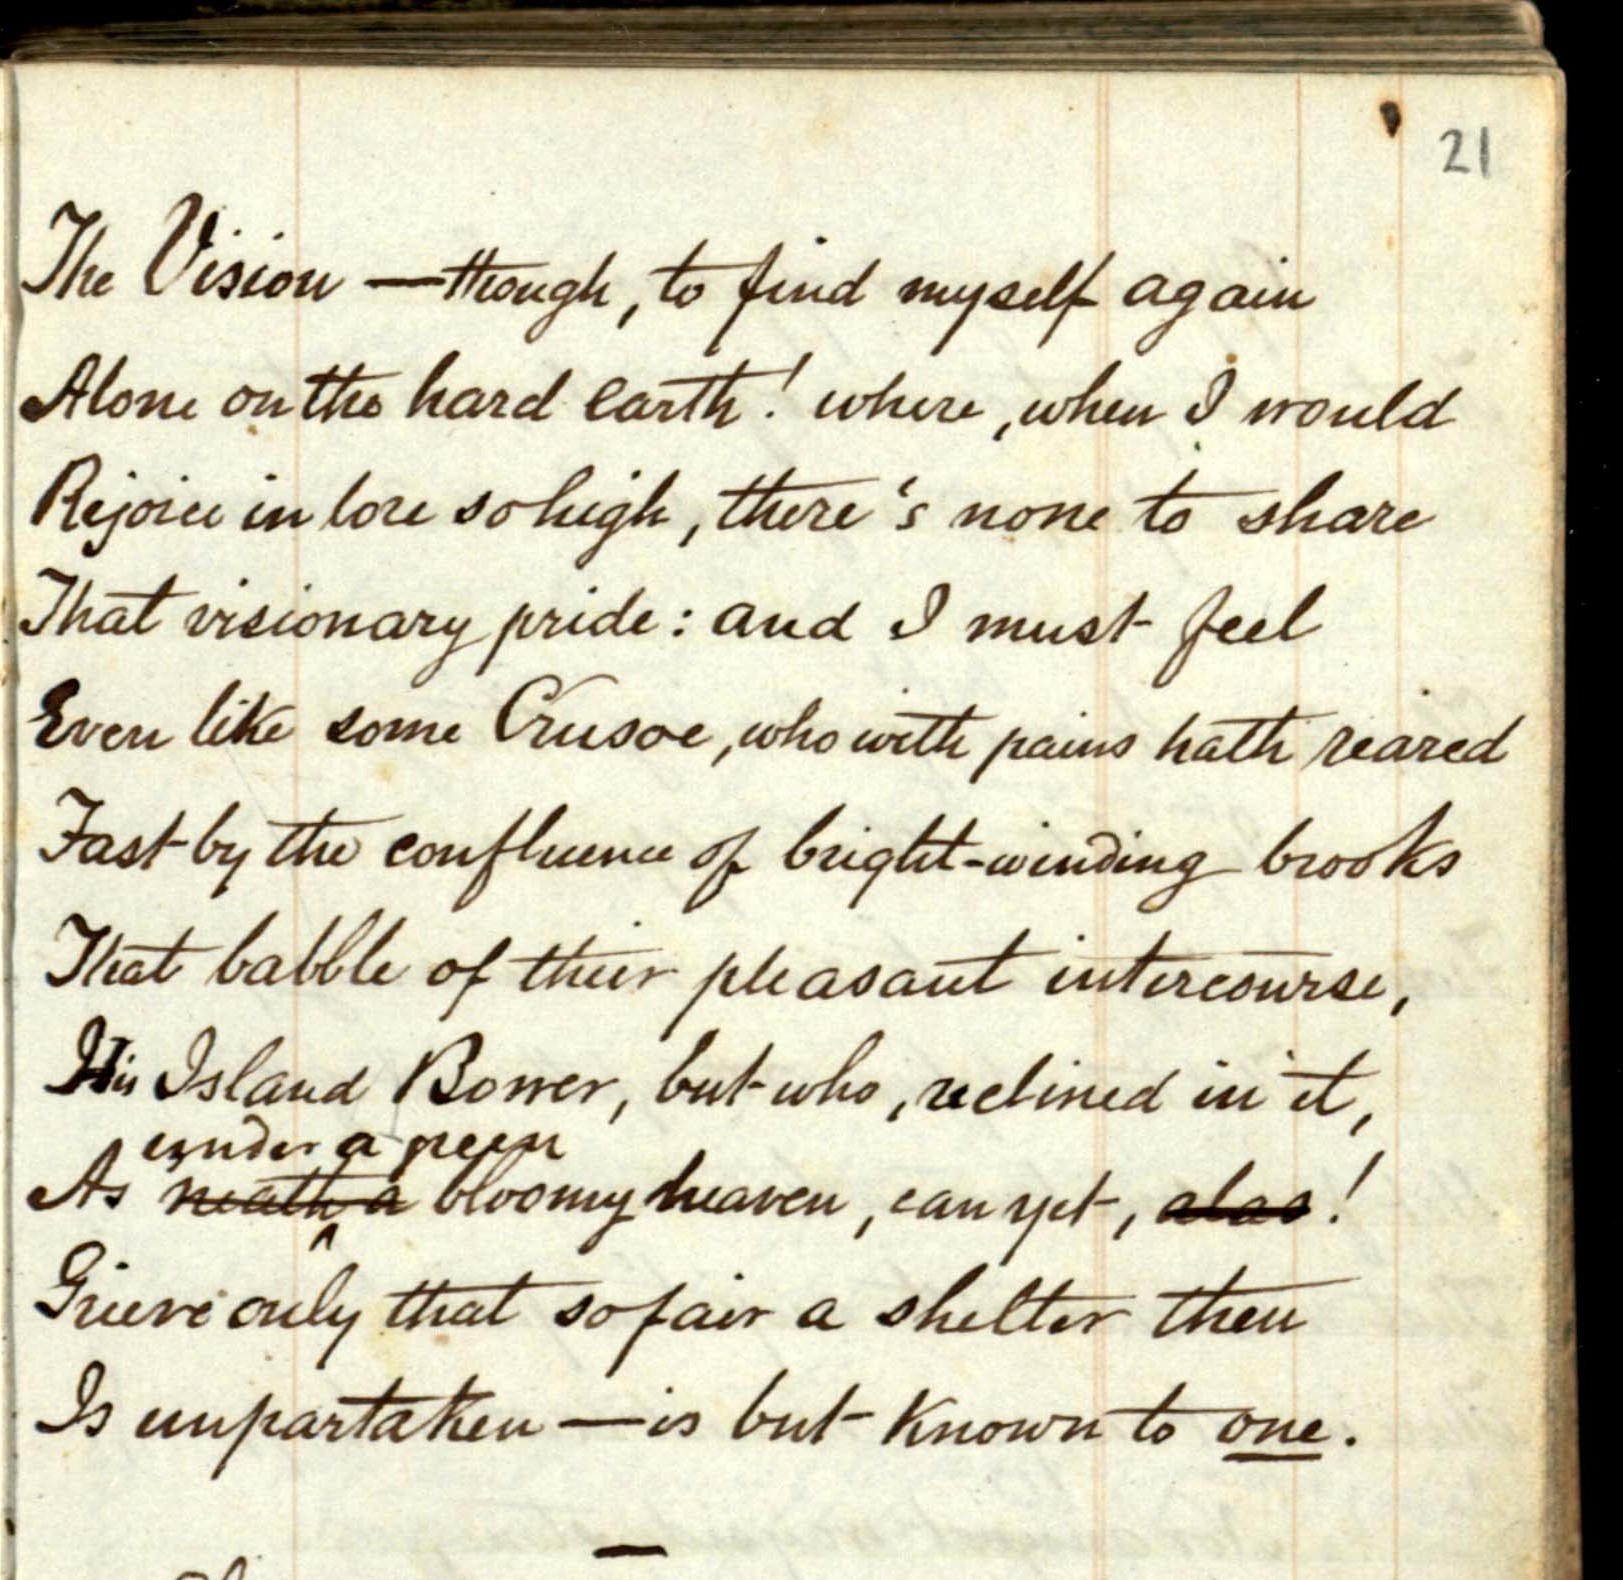 21
The Vision — though, to find myself again
Alone on the hard earth! where, when I would
Rejoice in lore so high, there's none to share
That visionary pride: and I must feel
Even like some Crusoe, who with pains hath reared
Fast by the confluence of bright-winding brooks
That babble of their pleasant intercourse,
His Island Bower, but who, reclined in it,
under a green
As neath a bloomy heaven, can yet, alas!
Grieve only that so fair a shelter then
Is unpartaken — is but known to one.